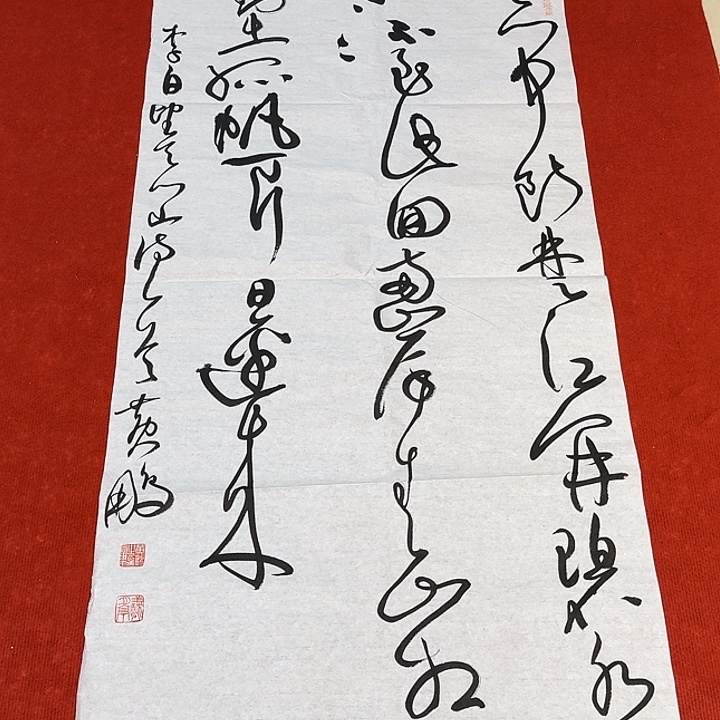 门中断楚江开碧水
至此回两岸青山相
出孤帆一片日边来
李白望天门山诗一首 黄鹏